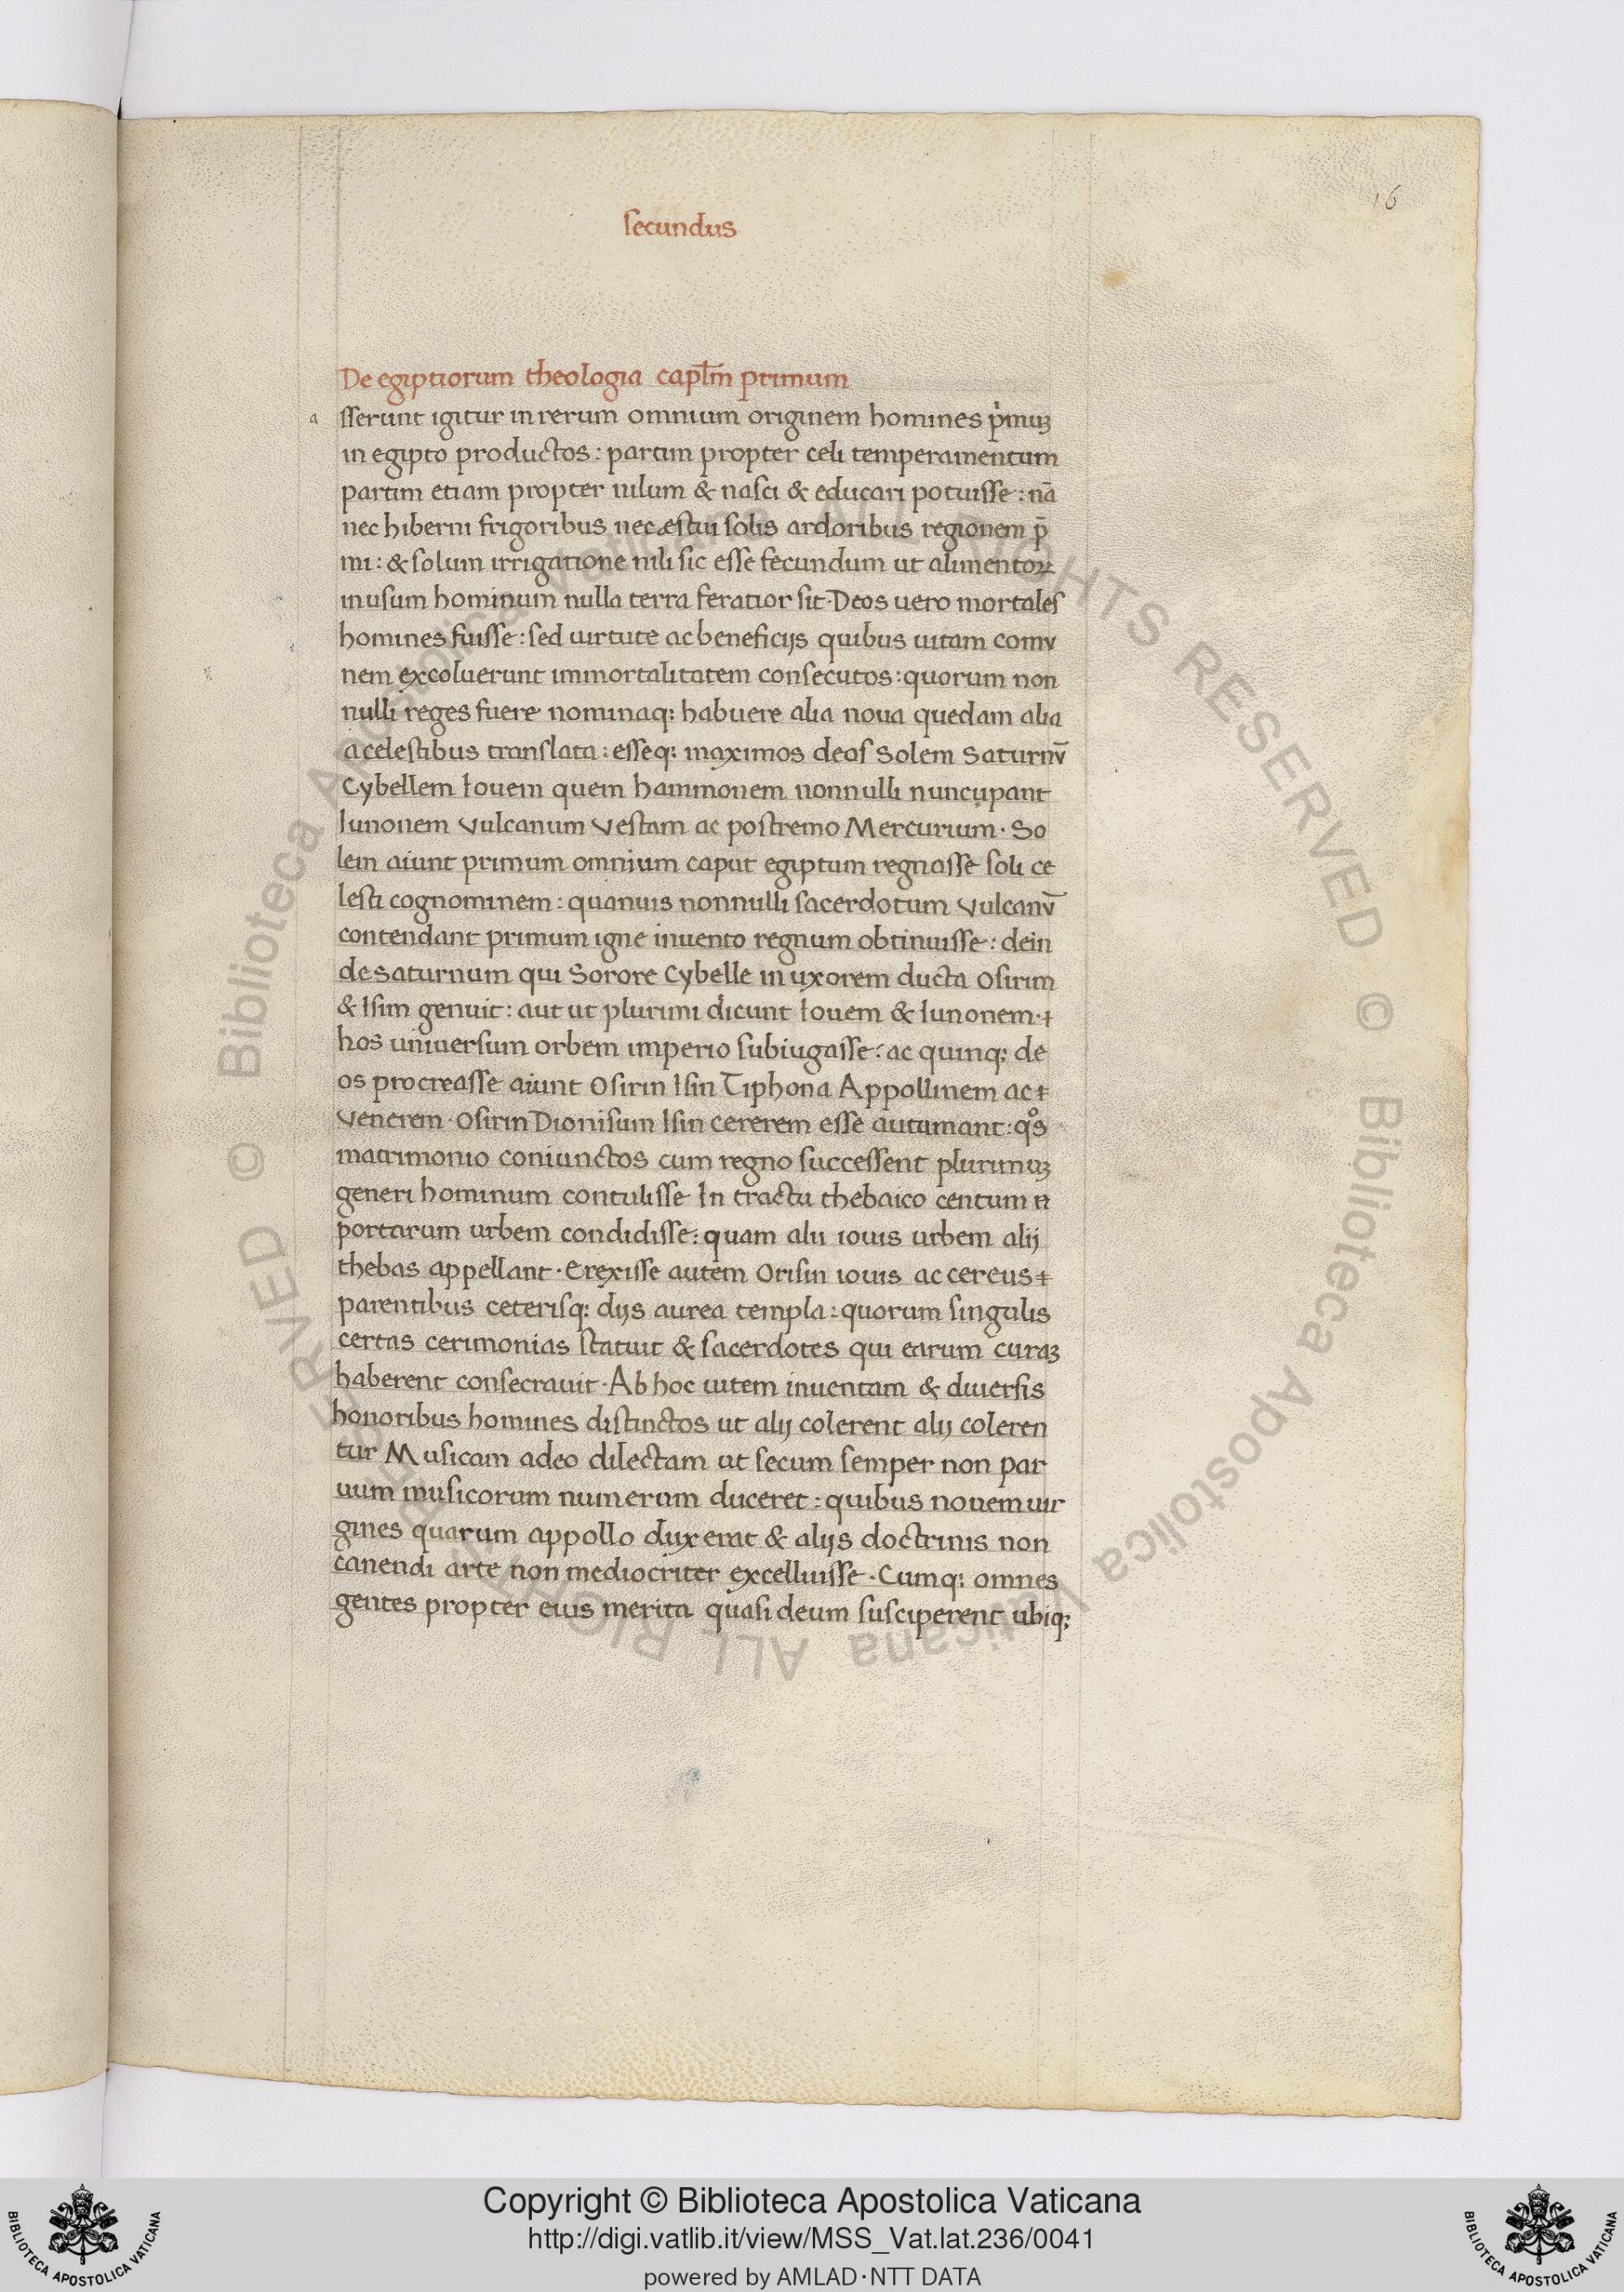 16
secundus
De egiptiorum theologia capl̄m primum
a sserunt igitur in rerum omnium originem homines pͥmuꝫ
in egipto productos: partim propter celi temperamentum
partim etiam propter nilum & nasci & educari potuisse: nā
nec hiberni frigoribus nec æstiui solis ardoribus regionem p̄
mi: & solum irrigatione nili sic esse fecundum ut alimentoꝝ
in usum hominum nulla terra feratior sit · Deos uero mortales
homines fuisse: sed uirtute ac beneficijs quibus uitam comv
nem excoluerunt immortalitatem consecutos: quorum non
nulli reges fuere nominaq; habuere alia noua quedam alia
a celestibus translata: esseq; maximos deos Solem Saturnv̄
Cybellem Iouem quem hammonem nonnulli nuncupant
Iunonem Vulcanum Vestam ac postremo Mercurium · So
lem aiunt primum omnium caput egiptum regnasse soli ce
lesti cognominem: quanuis nonnulli sacerdotum Vulcanv̄
contendant primum igne inuento regnum obtinuisse: dein
de Saturnum qui Sorore Cybelle in uxorem ducta Osirim
& Isim genuit: aut ut plurimi dicunt Iouem & Iunonem ·
hos uniuersum orbem imperio subiugasse: ac quinq; de
os procreasse aiunt Osirin Isin Tiphona Appollinem ac
Venerem · Osirin Dionisum Isin cererem esse autumant: qͦs
matrimonio coniunctos cum regno successent plurimuꝫ
generi hominum contulisse In tractu thebaico centum
portarum urbem condidisse: quam alii iouis urbem alij
thebas appellant · Erexisse autem Orisin iouis ac cereus
parentibus ceterisq; dijs aurea templa: quorum singulis
certas cerimonias statuit & sacerdotes qui earum curaꝫ
haberent consecrauit · Ab hoc uitem inuentam & diuersis
honoribus homines distinctos ut alij colerent alij coleren
tur Musicam adeo dilectam ut secum semper non par
uum musicorum numerum duceret: quibus nouem uir
gines quarum appollo dux erat & alijs doctrinis non
canendi arte non mediocriter excelluisse · Cumq; omnes
gentes propter eius merita quasi deum susciperent ubiq;
© Biblioteca Apostolica Vaticana ALL RIGHTS RESERVED © Biblioteca Apostolica Vaticana ALL RIGHTS RESERVED
Copyright © Biblioteca Apostolica Vaticana
http://digi.vatlib.it/view/MSS_Vat.lat.236/0041
powered by AMLAD·NTT DATA
BIBLIOTECA APOSTOLICA VATICANA
BIBLIOTECA APOSTOLICA VATICANA